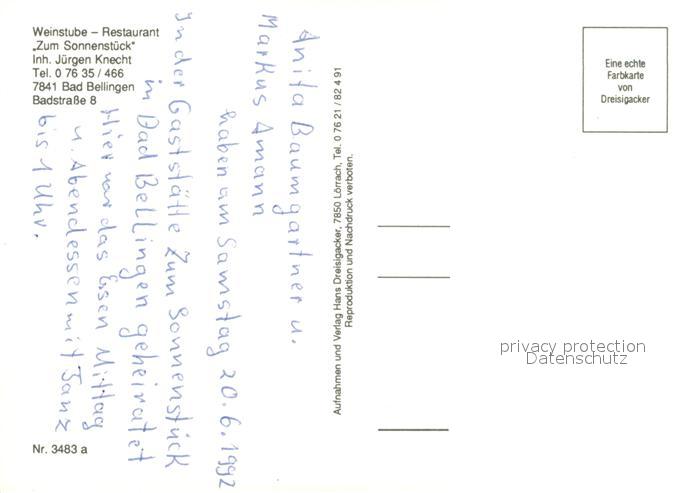 Weinstube – Restaurant
„Zum Sonnenstück"
Inh. Jürgen Knecht
Tel. 0 76 35 / 466
7841 Bad Bellingen
Badstraße 8
Anita Baumgartner u.
Markus Amann
haben am Samstag 20.6.1992
In der Gaststätte Zum Sonnenstück
in Bad Bellingen geheiratet
Hier war das Essen Mittag
u. Abendessen mit Tanz
bis 1 Uhr.
Nr. 3483 a
Aufnahmen und Verlag Hans Dreisigacker, 7850 Lörrach, Tel. 0 76 21 / 82 4 91
Reproduktion und Nachdruck verboten.
Eine echte
Farbkarte
von
Dreisigacker
privacy protection
Datenschutz